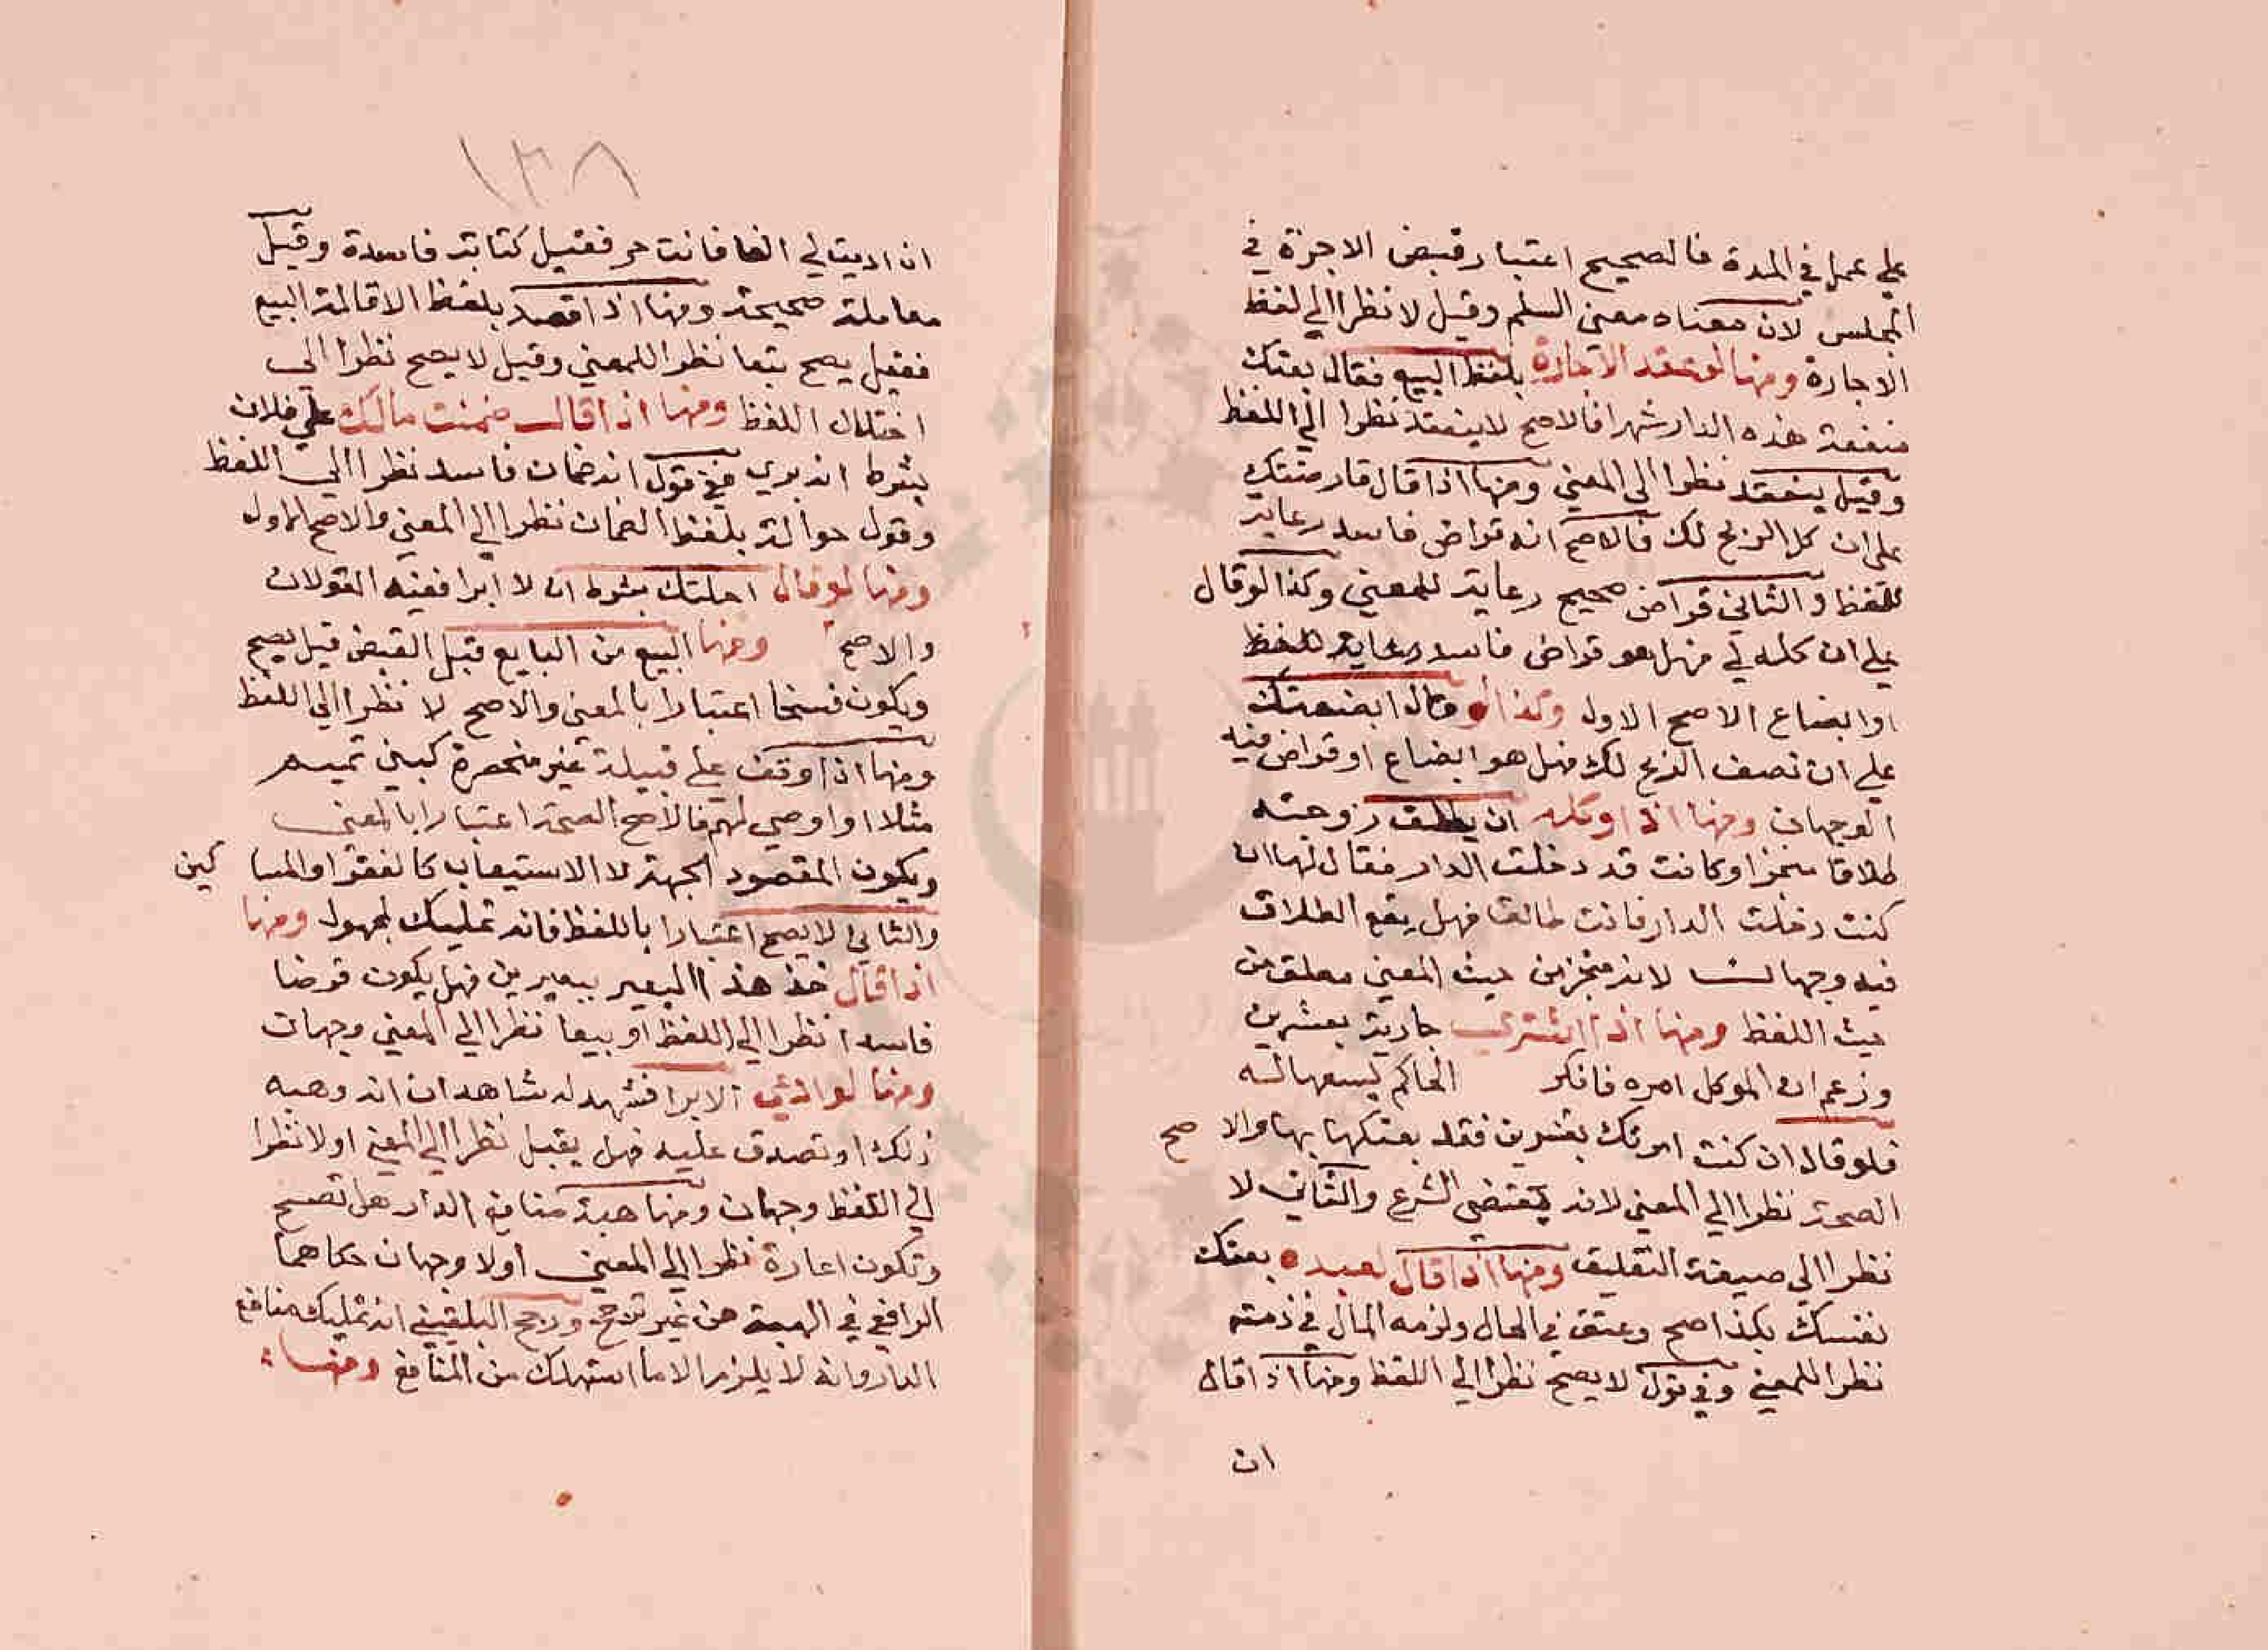 على عمل في المدة فالصحيح اعتبار قبض الاجرة في
المجلس لان معناه معنى السلم وقيل لا نظرا الي لفظ
الاجارة ومنها لو عقد الاجارة بلفظ البيع فقال بعتك
منفعة هذه الدار شهرا فالاصح لا ينعقد نظرا الي اللفظ
وقيل ينعقد نظرا الي المعني ومنها اذا قال قارضتك
على ان كل الربح لك فالاصح انه قراض فاسد رعاية
للفظ والثاني قراض صحيح رعاية للمعني وكذا لو قال
علي ان كله لي فهل هو قراض فاسد رعاية للفظ
او ابضاع الاصح الاول وكذا لو قال ابضعتك
علي ان نصف الربح لك فهل هو ابضاع او قراض فيه
الوجهان ومنها اذا وكله ان يطلق زوجته
طلاقا منجزا وكانت قد دخلت الدار فقال لها ان
كنت دخلت الدار فانت طالق فهل يقع الطلاق
فيه وجهان لانه منجز من حيث المعني معلق من
حيث اللفظ ومنها اذا اشتري جارية بعشرين
وزعم ان الموكل امره فانكر الحاكم ليبيعها له
فلو قال ان كنت امرتك بعشرين فقد بعتكها بها والا صح
الصحة نظرا الي المعني لانه يقتضي الشرع والثاني لا
نظرا الي صيغة التعليق ومنها اذا قال لعبده بعتك
نفسك بكذا صح وعتق في الحال ولزمه المال في ذمته
نظرا للمعني وفي قول لا يصح نظرا الي اللفظ ومنها اذا قال
ان
١٣٨
ان اديت لي الفا فانت حر فقيل كتابة فاسدة وقيل
معاملة صحيحة ومنها اذا قصد بلفظ الاقالة البيع
فقيل يصح بيعا نظرا للمعني وقيل لا يصح نظرا الي
اختلال اللفظ ومنها اذا قال ضمنت مالك علي فلان
بشرط انه بري ففي قول انه ضمان فاسد نظرا الي اللفظ
وقول حوالة بلفظ الضمان نظرا الي المعني والاصح الاول
ومنها لو قال احلتك بشرط ان لا ابرا ففيه القولان
والاصح ومنها البيع من البايع قبل القبض قيل يصح
ويكون فسخا اعتبارا بالمعني والاصح لا نظرا الي اللفظ
ومنها اذا وقف علي قبيلة غير منحصرة كبني تميم
مثلا او اوصي لهم فالاصح الصحة اعتبارا بالمعني
ويكون المقصود الجهة لا الاستيعاب كالفقرا والمسا كين
والثاني لا يصح اعتبارا باللفظ فانه تمليك لمجهول ومنها
اذا قال خذ هذا البعير ببعيرين فهل يكون قرضا
فاسدا نظرا الي اللفظ او بيعا نظرا الي المعني وجهان
ومنها لو ادعي الابرا فشهد له شاهدان انه وهبه
ذلك او تصدق عليه فهل يقبل نظرا الي المعني او لا نظرا
الي اللفظ وجهان ومنها هبة منافع الدار هل تصح
وتكون اعارة نظرا الي المعني اولا وجهان حكاهما
الرافعي في الهبة من غير ترجيح ورجح البلقيني انه تمليك منافع
الدار وانه لا يلزم الا ما استهلك من المنافع ومنها